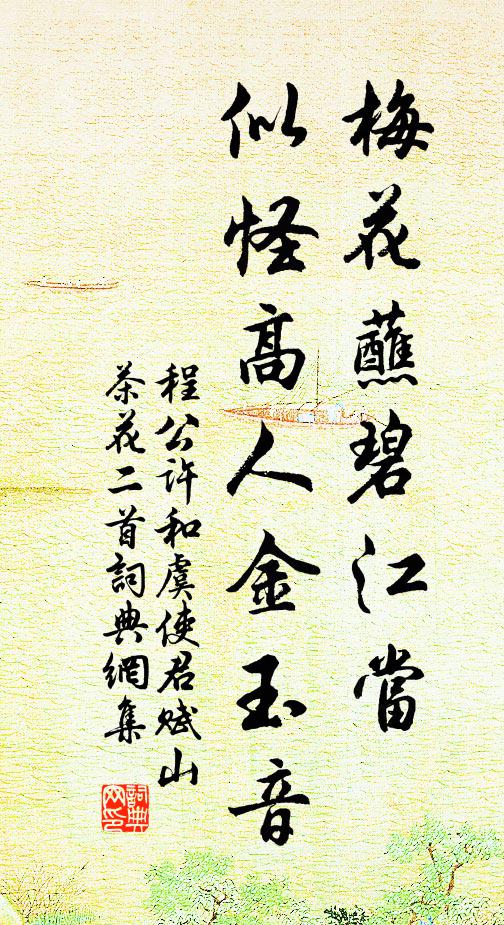 梅花蘸碧江當
似怪高人金玉音
程公许和虞使君赋山
茶花二首詞典網集
詞典
网印